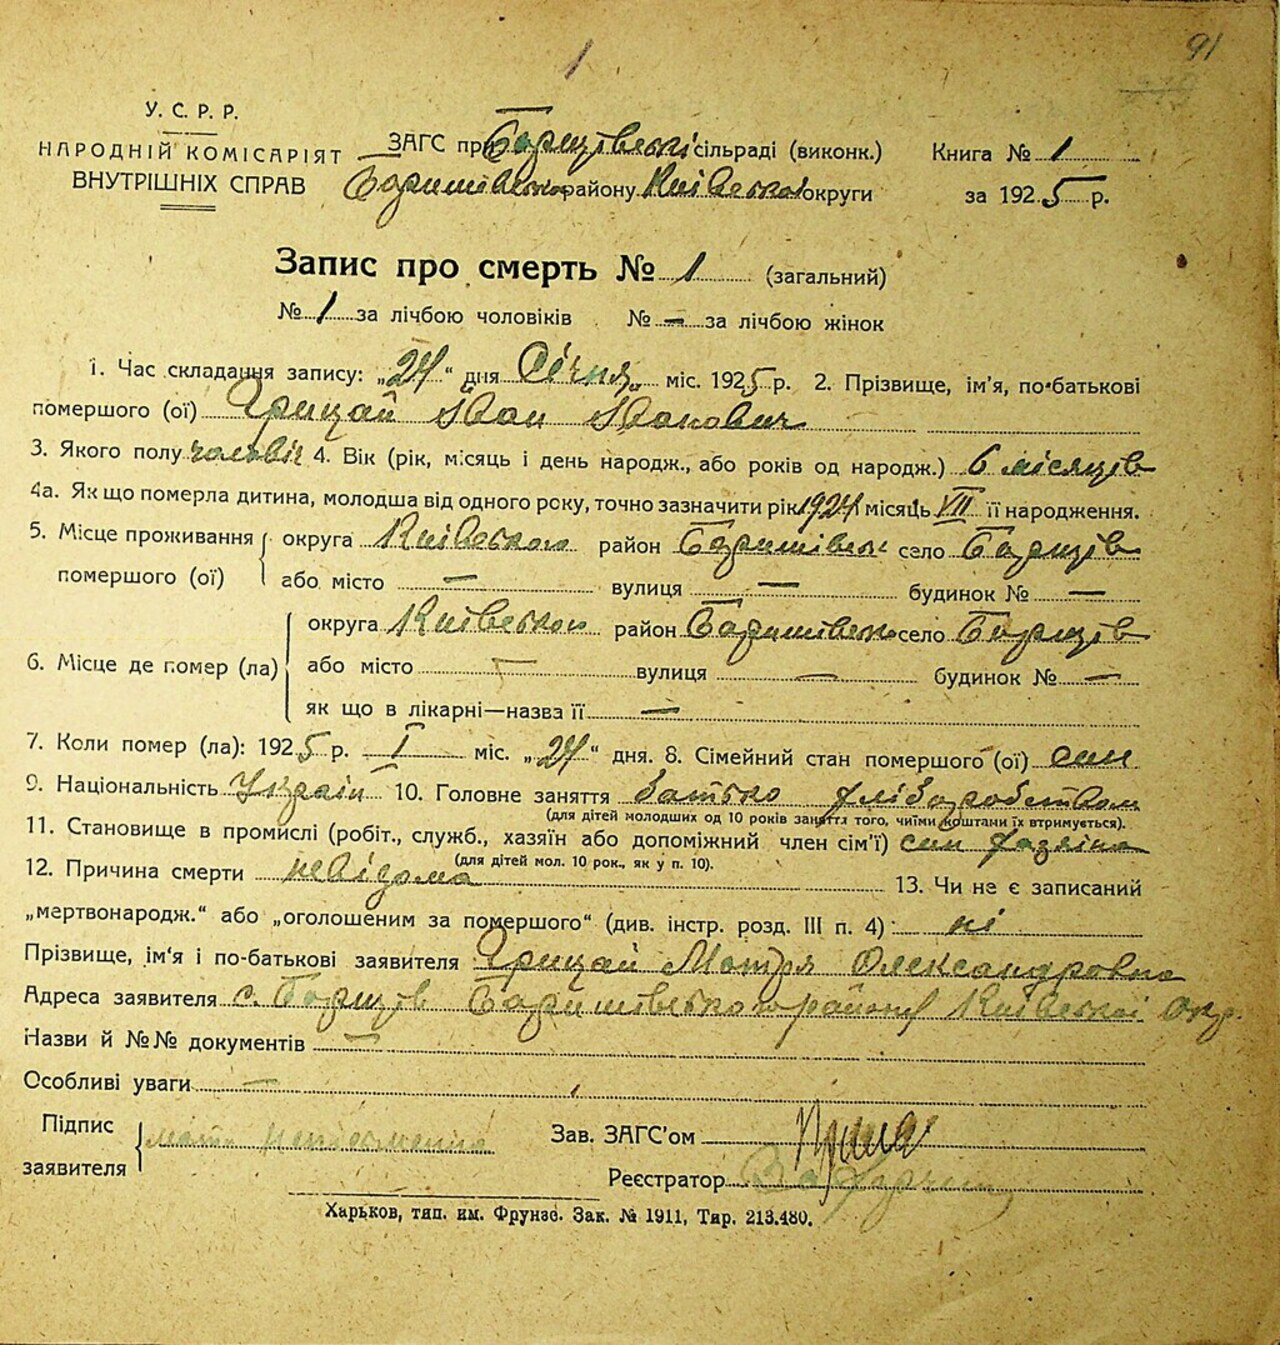 1
91
У. С. Р. Р.
НАРОДНІЙ КОМІСАРІЯТ
ВНУТРІШНІХ СПРАВ
ЗАГС при Борщівській сільраді (виконк.)
Баришівського району Київської округи
Книга № 1
за 1925 р.
Запис про смерть № 1 (загальний)
№ 1 за лічбою чоловіків № — за лічбою жінок
1. Час складання запису: „24“ дня Січня міс. 1925 р. 2. Прізвище, ім'я, по-батькові
помершого (ої) Грицай Іван Іванович
3. Якого полу чоловіч 4. Вік (рік, місяць і день народж., або років од народж.) 6 місяців
4а. Як що померла дитина, молодша від одного року, точно зазначити рік 1924 місяць VII її народження.
5. Місце проживання помершого (ої) округа Київської район Баришівськ село Борщів
або місто — вулиця — будинок № —
6. Місце де помер (ла) округа Київської район Баришівськ село Борщів
або місто — вулиця — будинок № —
як що в лікарні—назва її —
7. Коли помер (ла): 1925 р. I міс. „24“ дня. 8. Сімейний стан помершого (ої) син
9. Національність Україн 10. Головне заняття батько хліборобством
(для дітей молодших од 10 років заняття того, чиїми коштами їх втримується).
11. Становище в промислі (робіт., служб., хазяїн або допоміжний член сім'ї) син хазяїна
(для дітей мол. 10 рок., як у п. 10).
12. Причина смерти невідома 13. Чи не є записаний
„мертвонародж.“ або „оголошеним за помершого“ (див. інстр. розд. III п. 4): ні
Прізвище, ім'я і по-батькові заявителя Грицай Мотря Олександровна
Адреса заявителя с. Борщів Баришівського району Київської окр.
Назви й №№ документів —
Особливі уваги —
Підпис заявителя мати неписьменна
Зав. ЗАГС'ом
Реєстратор
Харьков, тип. им. Фрунзе. Зак. № 1911, Тир. 213.480.